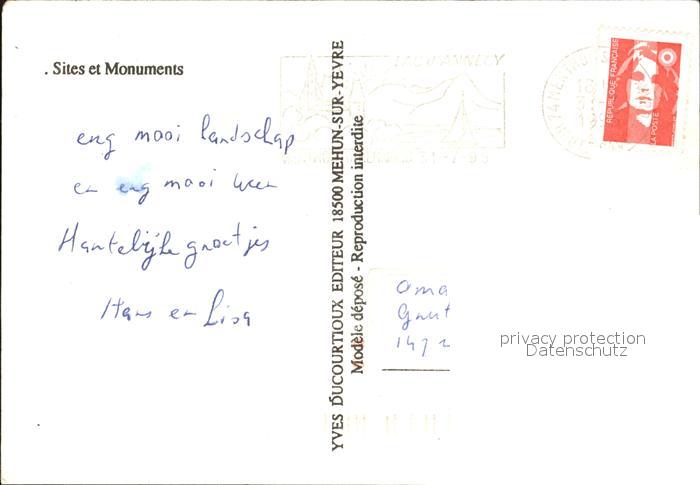 . Sites et Monuments
eng mooi landschap
en eng mooi weer
Hartelijke groetjes
Hans en Lisa
YVES DUCOURTIOUX EDITEUR 18500 MEHUN-SUR-YEVRE
Modèle déposé - Reproduction interdite
LAC D'ANNECY
REPUBLIQUE FRANÇAISE
LA POSTE
privacy protection
Datenschutz